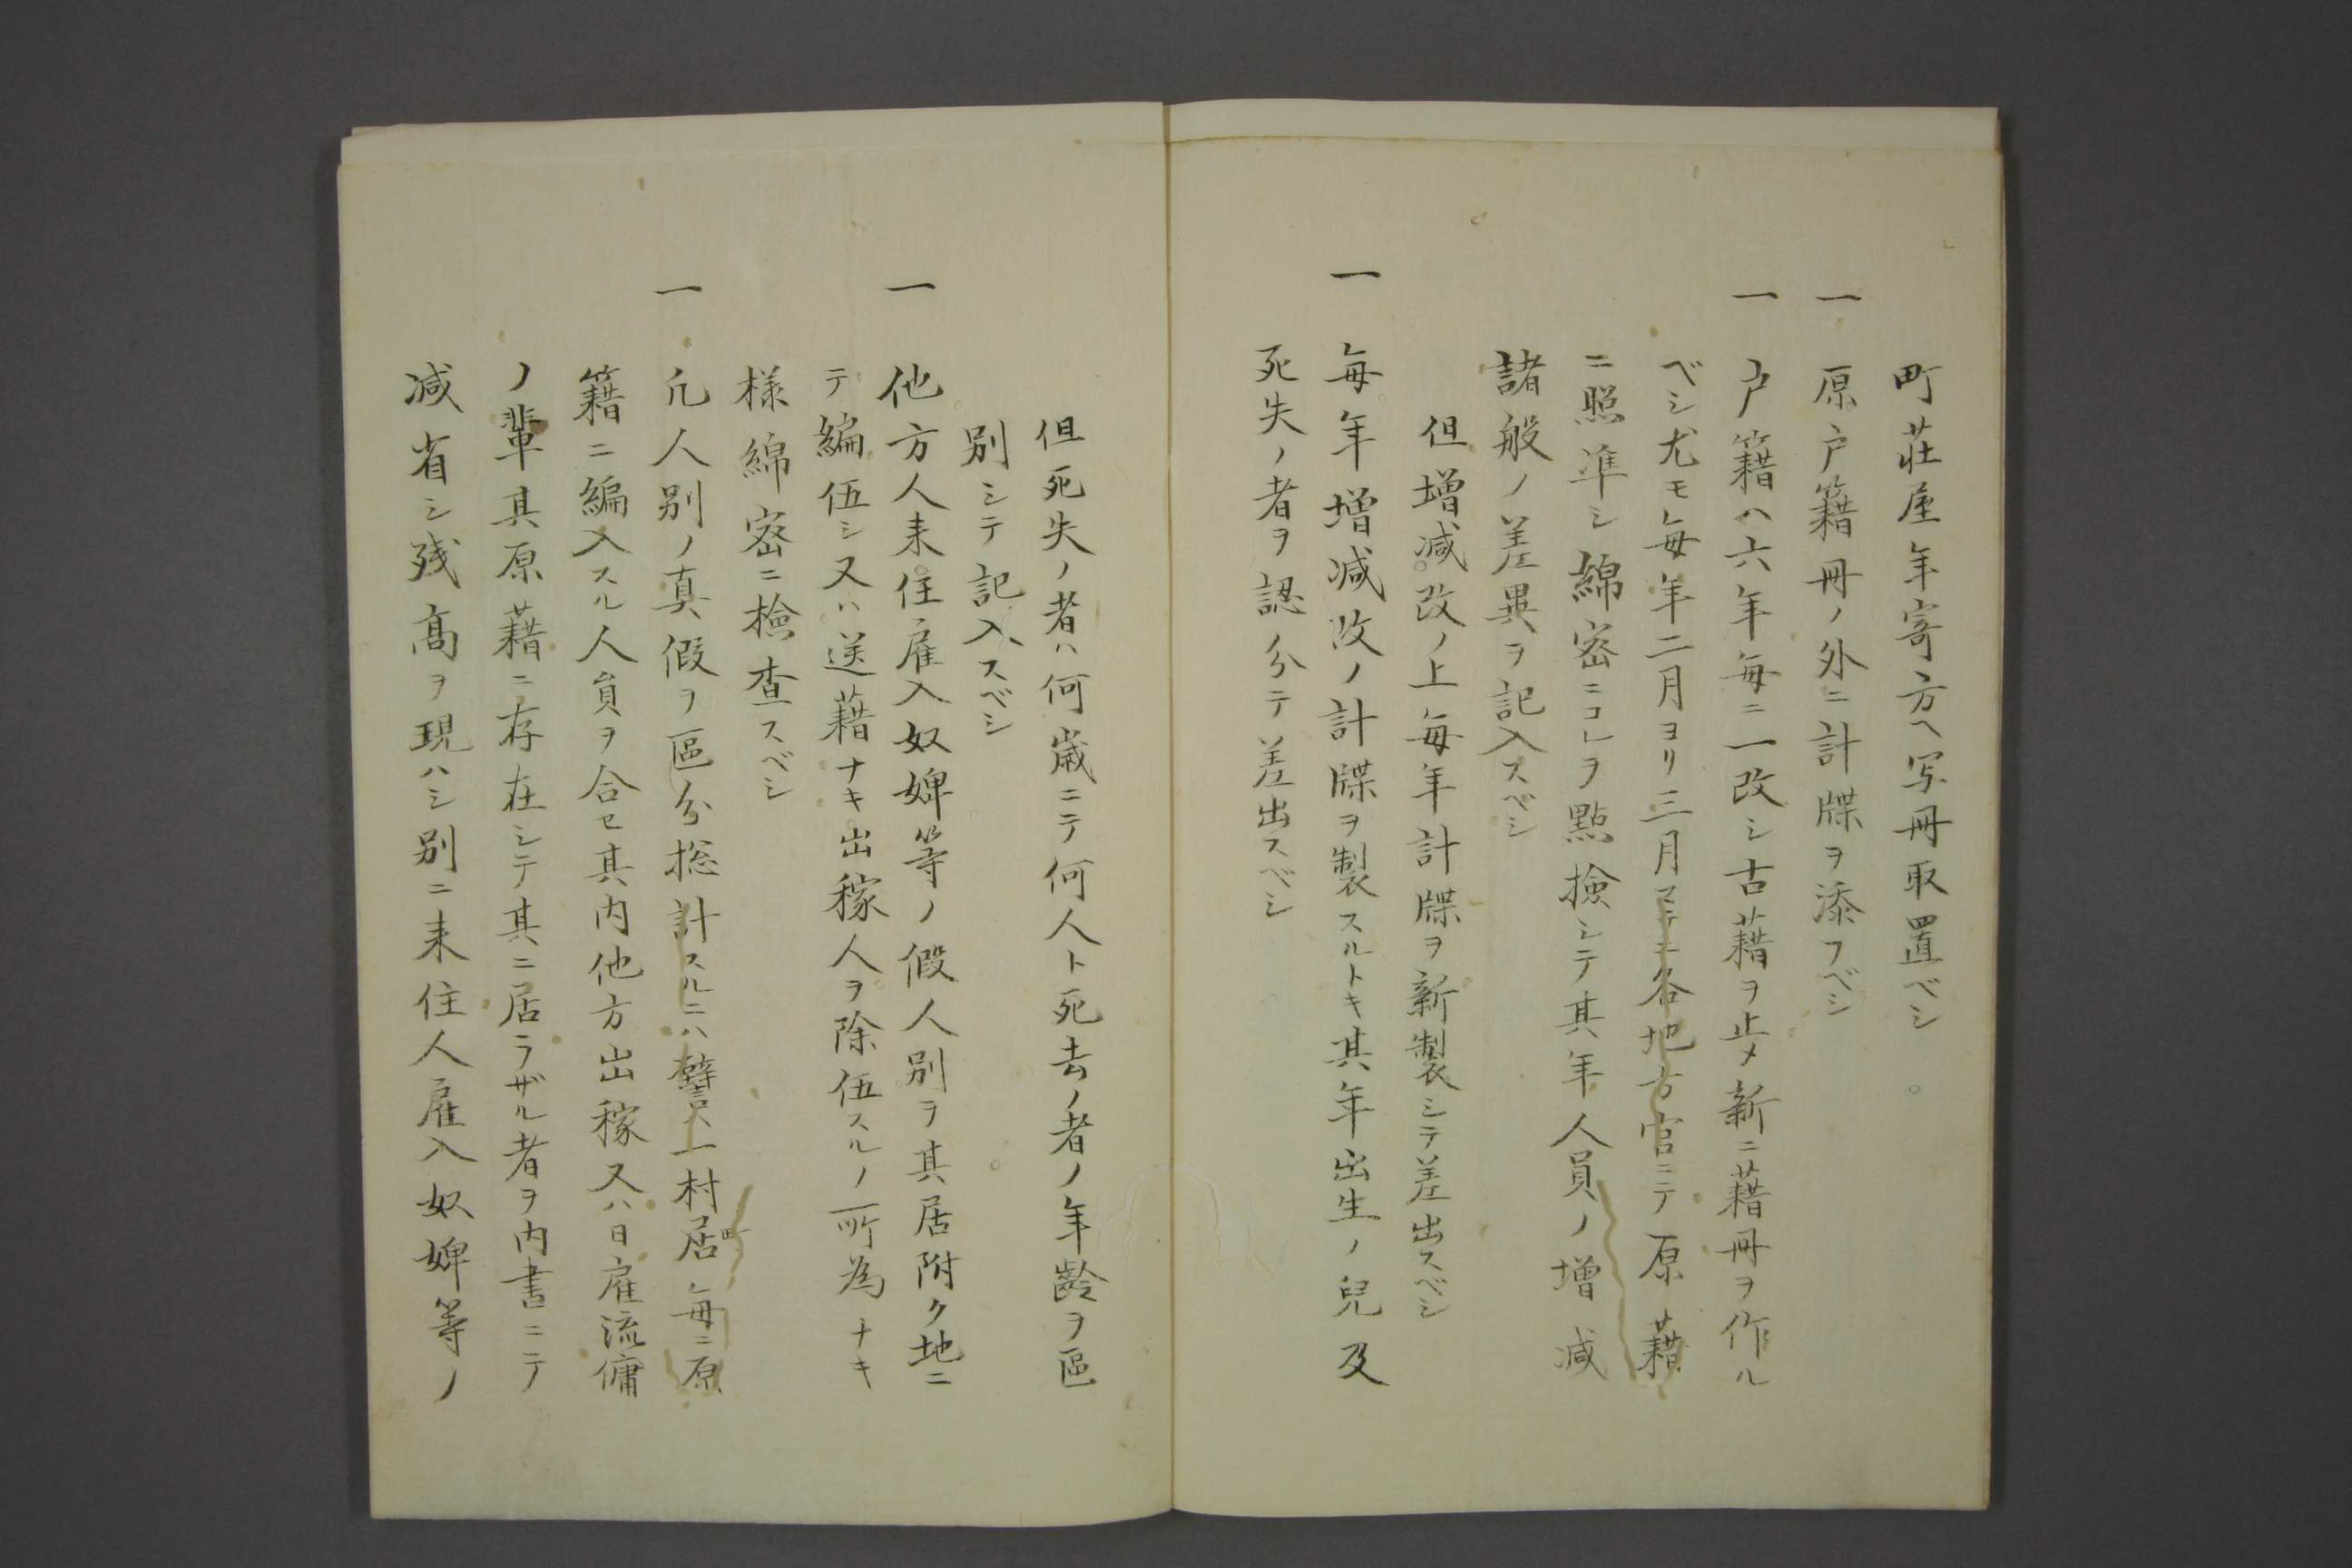 町荘屋年寄方ヘ写冊取置ベシ
一 原戸籍冊ノ外ニ計牒ヲ添フベシ
一 戸籍ハ六年毎ニ一改シ古藉ヲ止メ新ニ藉冊ヲ作ル
ベシ尤モ毎年二月ヨリ三月マテニ各地方官ニテ原藉
ニ照準シ綿密ニコレヲ點撿シテ其年人員ノ増减
諸般ノ差異ヲ記入スベシ
但増减改ノ上毎年計牒ヲ新製シテ差出スベシ
一 毎年増减改ノ計牒ヲ製スルトキ其年出生ノ兒及
死失ノ者ヲ認分テ差出スベシ
但死失ノ者ハ何歳ニテ何人ト死去ノ者ノ年齢ヲ區
別シテ記入スベシ
一 他方人来住雇入奴婢等ノ假人別ヲ其居附ク地ニ
テ編伍シ又ハ送藉ナキ出稼人ヲ除伍スルノ所為ナキ
様綿密ニ撿査スベシ
一 凢人別ノ真假ヲ區分捴計スルニハ譬ヘハ一村居町毎ニ原
籍ニ編入スル人員ヲ合セ其内他方出稼又ハ日雇流傭
ノ輩其原藉ニ存在シテ其ニ居ラザル者ヲ内書ニテ
减省シ残髙ヲ現ハシ別ニ来住人雇入奴婢等ノ